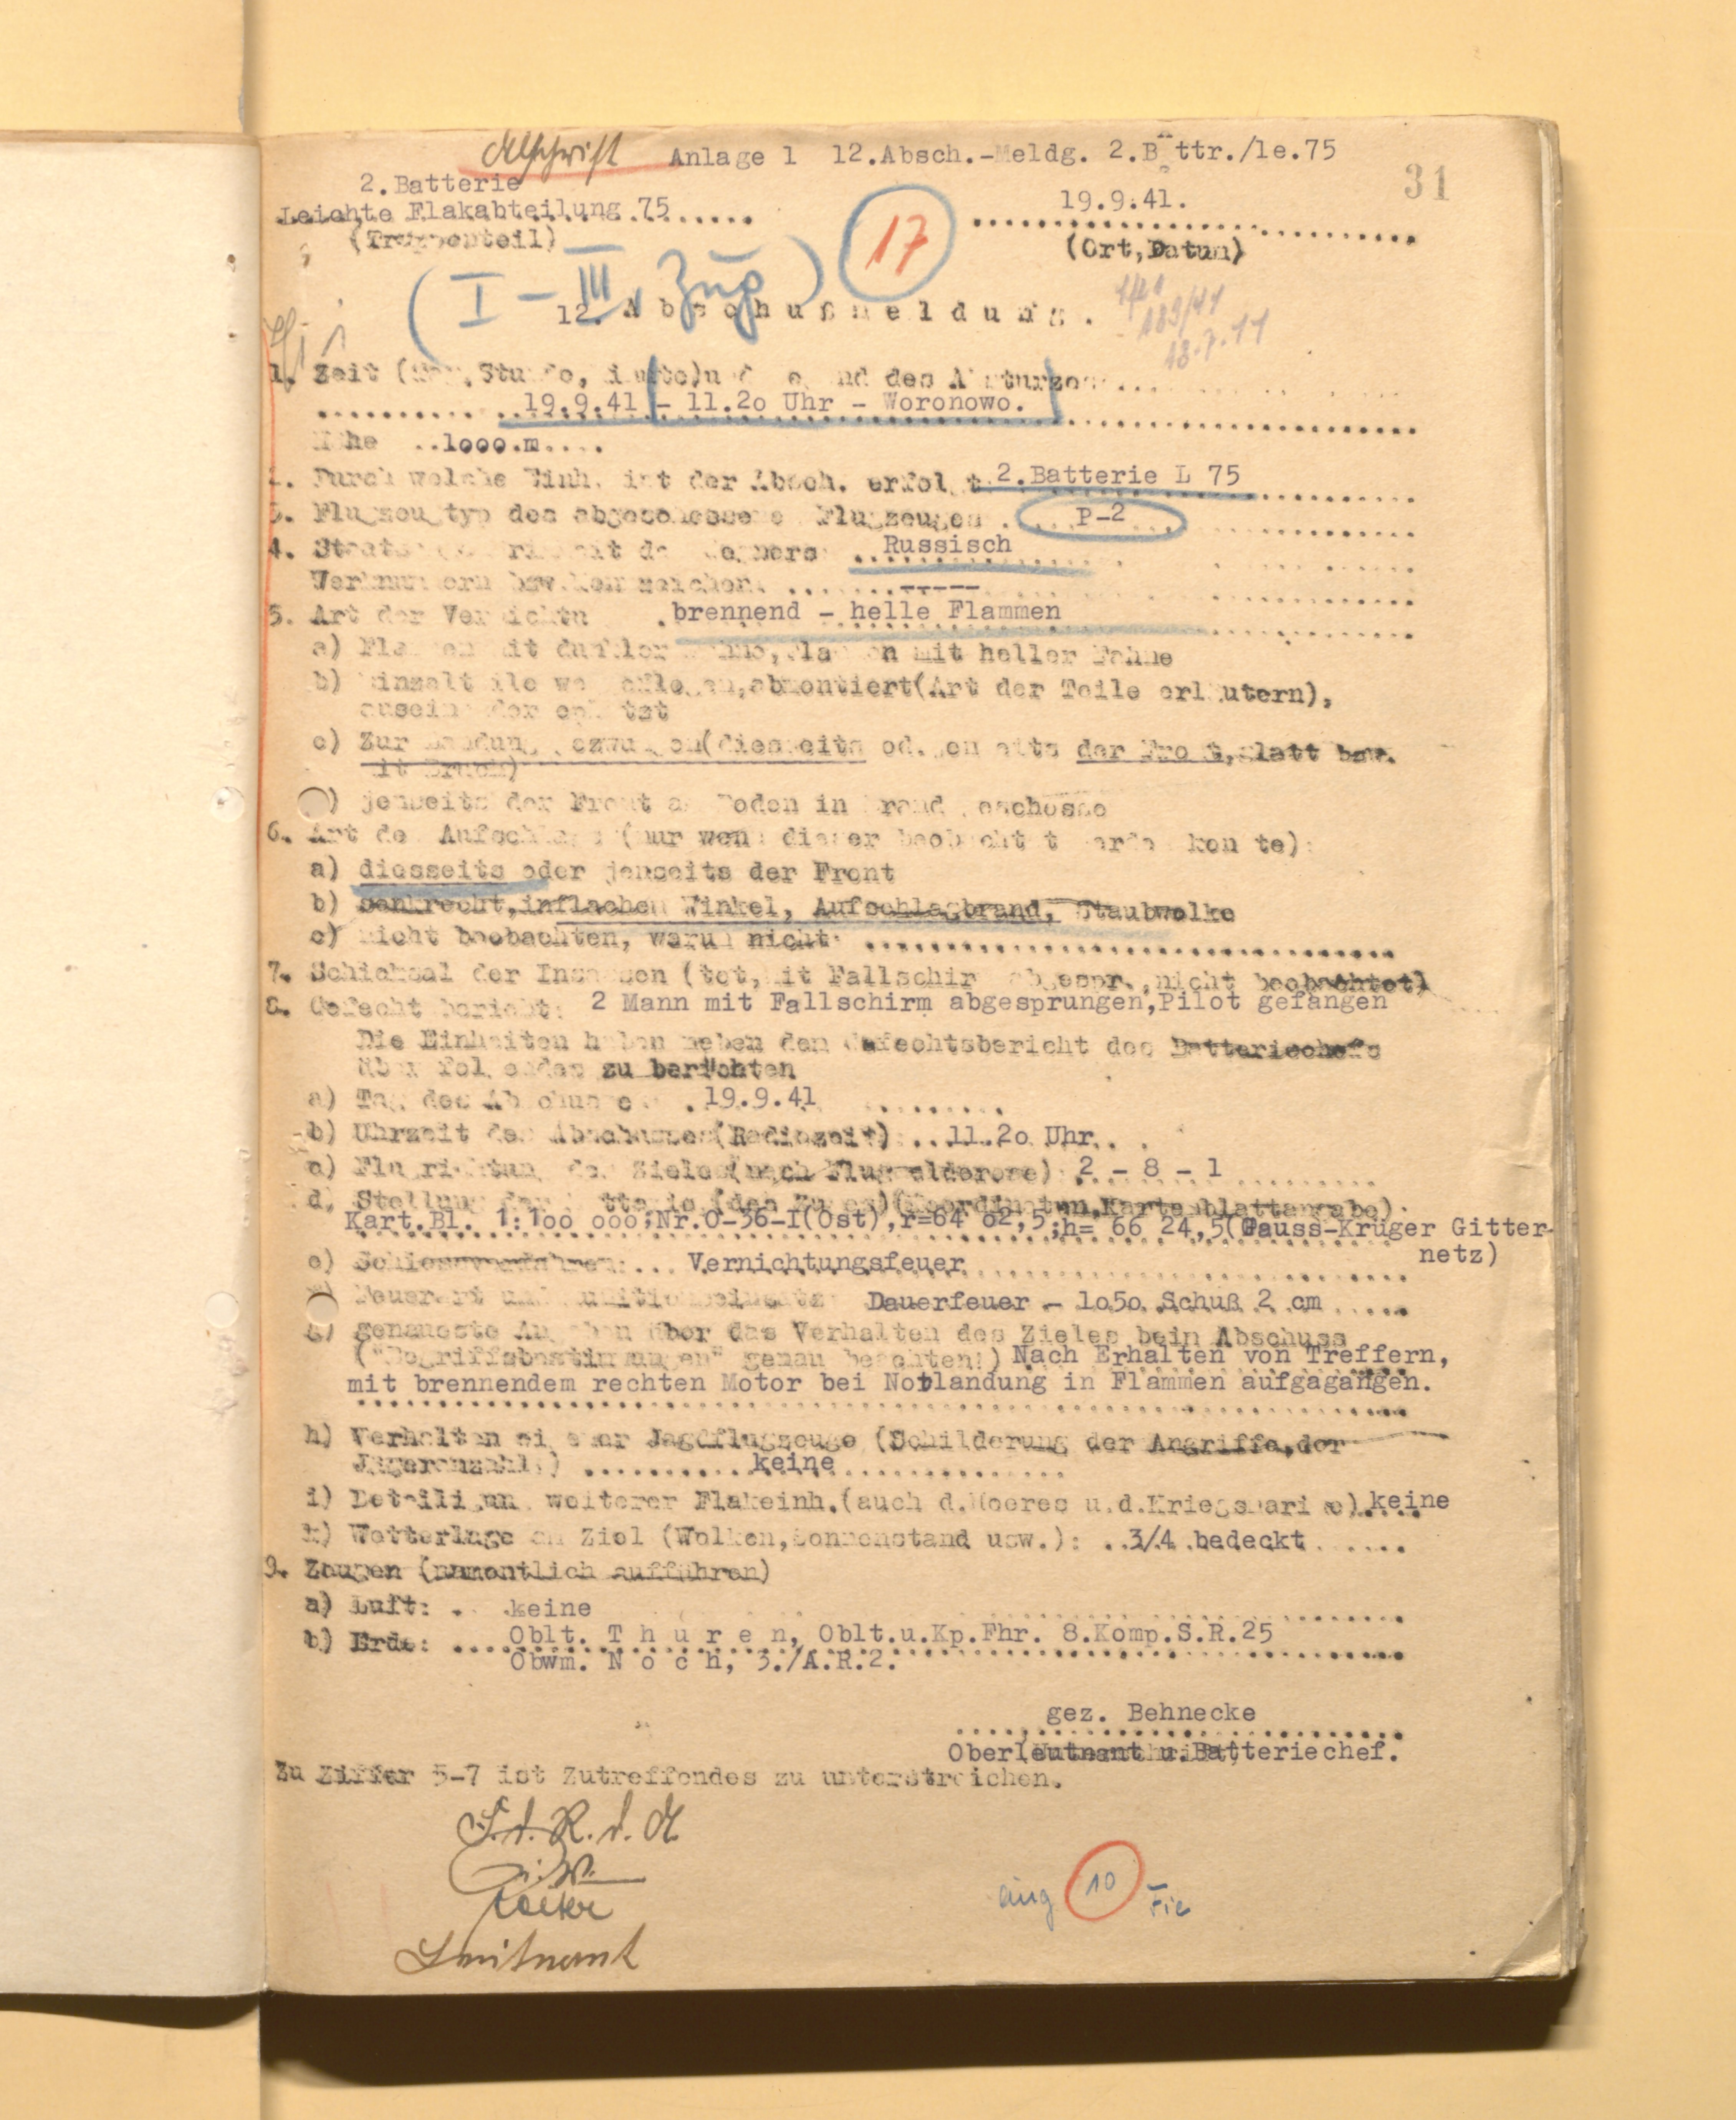 Abschrift Anlage 1 12.Absch.-Meldg. 2.Bttr./le.75
31
2.Batterie
Leichte Flakabteilung 75
19.9.41.
(Truppenteil)
17
(Ort,Datum)
(I - III. Zug)
12. Abschußmeldung.
183/41
1. Zeit (Tag, Stunde, Minute)und Gegend des Absturzes
19.9.41 - 11.2o Uhr - Woronowo.
Höhe ..1ooo.m....
2. Durch welche Einh. ist der Absch. erfolgt 2.Batterie L 75
3. Flugzeugtyp des abgeschossenen Flugzeuges . P-2
4. Russisch
Werknummern bzw.Kennzeichen. -----
5. Art der Vernichtung brennend - helle Flammen
a) Flammen mit dunkler Fahne,Flammen mit heller Fahne
b) Einzelteile wegfliegen,abmontiert(Art der Teile erläutern),
auseinandergeplatzt
c) Zur Landung gezwungen(diesseits od.jenseits der Front,glatt bzw.
mit Bruch)
) jenseits der Front am Boden in Brand geschossen
6. Art des Aufschlages (nur wenn dieser beobachtet werden konnte):
a) diesseits oder jenseits der Front
b) senkrecht,inflachen Winkel, Aufschlagbrand, Staubwolke
c) nicht beobachten, warum nicht:
7. Schicksal der Insassen (tot,mit Fallschirm abgespr.,nicht beobachtet)
8. Gefechtsbericht: 2 Mann mit Fallschirm abgesprungen,Pilot gefangen
Die Einheiten haben neben dem Gefechtsbericht des Batteriechefs
über folgendes zu berichten
a) Tag des Abschusses .19.9.41
b) Uhrzeit des Abschusses(Radiozeit) ..11.2o Uhr..
c) Flugrichtung des Zieles(nach Flugmelderose) 2 - 8 - 1
d) Stellung der Batterie (des Zuges)(Koordinaten,Kartenblattangabe)
Kart.Bl. 1:1oo ooo;Nr.O-36-I(Ost),r=64 o2,5;h= 66 24,5(Gauss-Krüger Gitter-
netz)
e) Schiessverfahren:... Vernichtungsfeuer
Feuerart und Munitionseinsatz Dauerfeuer - 1o5o Schuß 2 cm
g) genaueste Angaben über das Verhalten des Zieles beim Abschuss
("Begriffsbestimmungen" genau beachten!) Nach Erhalten von Treffern,
mit brennendem rechten Motor bei Notlandung in Flammen aufgagangen.
h) Verhalten eigener Jagdflugzeuge (Schilderung der Angriffe,der
Jägeranzahl) keine
i) Beteiligung weiterer Flakeinh.(auch d.Heeres u.d.Kriegsmarine) keine
k) Wetterlage am Ziel (Wolken,Sonnenstand usw.): ..3/4 bedeckt
9. Zeugen (namentlich aufführen)
a) Luft: . keine
b) Erde: Oblt. T h u r e n, Oblt.u.Kp.Fhr. 8.Komp.S.R.25
Obwm. N o c h, 3./A.R.2.
gez. Behnecke
Oberleutnant u.Batteriechef.
Zu Ziffer 5-7 ist Zutreffendes zu unterstreichen.
F.d.R.d.A
10
Leutnant